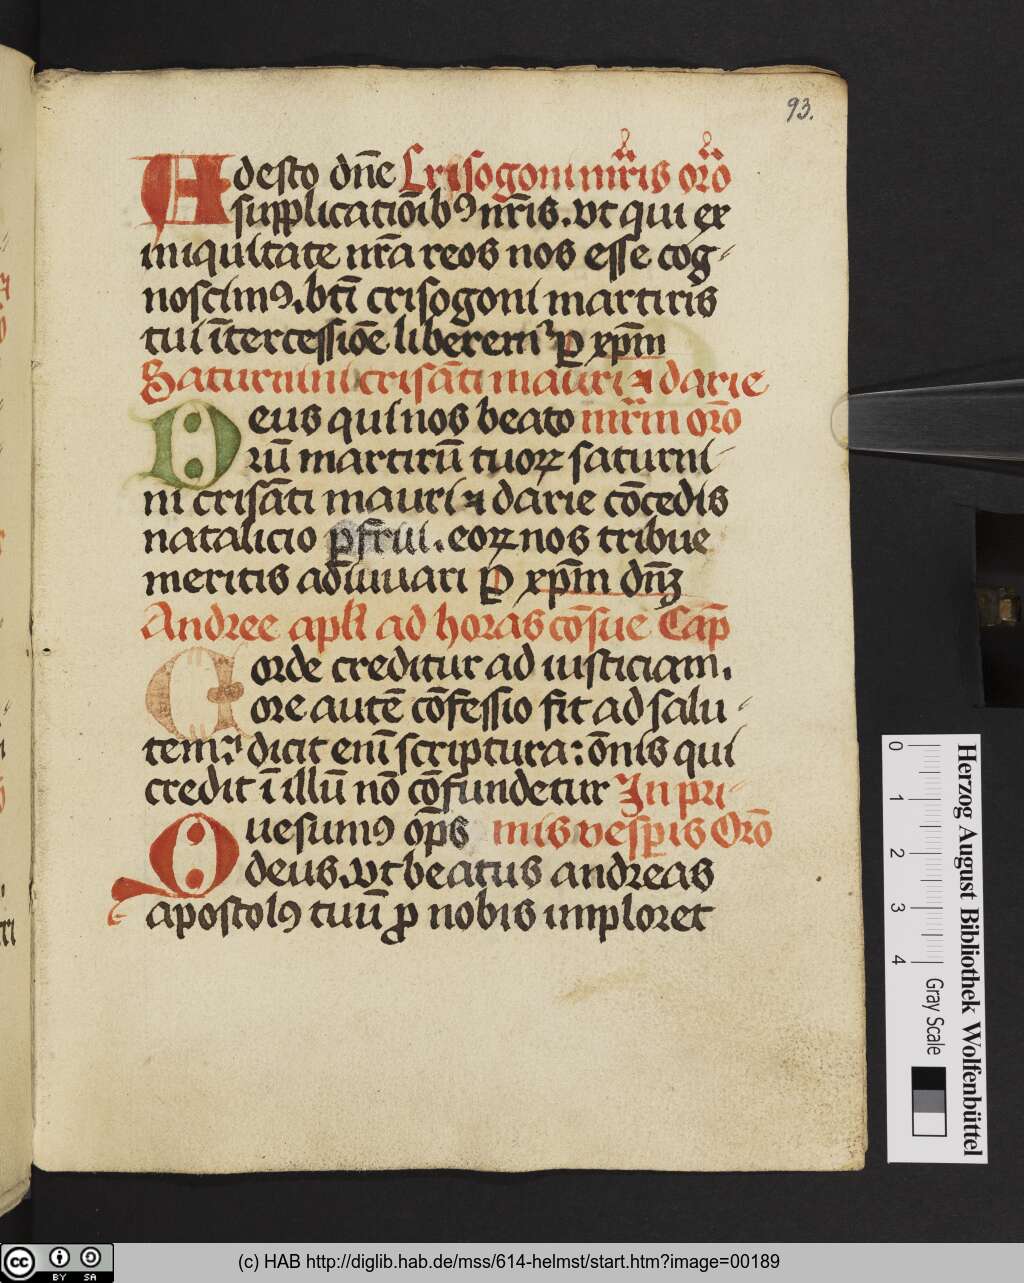 93.
Adesto dn̄e Crisogoni mr̄ris or̄o
supplicatiōibꝰ nr̄is. vt qui ex
iniquitate nr̄a reos nos esse cog-
noscimꝰ. bt̄i crisogoni martiris
tui īntercessiōe liberemᷣ ꝑ xp̄m
Saturnini crisāti mauri ⁊ darie
Deus qui nos beato mr̄m or̄o
rū martirū tuoꝝ saturni-
ni crisāti mauri ⁊ darie cōcedis
natalicio ꝑfrui. eoꝝ nos tribue
meritis adiuuari ꝑ xp̄m dn̄ꝫ
Andree apli ad horas cōsue Cap̄
Corde creditur ad iusticiam.
ore autē cōfessio fit ad salu-
tem: dicit enī scriptura: ōnis qui
credit ī illū nō cōfundetur In pri-
Quesumꝰ op̄s mis vesꝑis Or̄o
deus. vt beatus andreas
apostolꝰ tuū ꝓ nobis imploret
Herzog August Bibliothek Wolfenbüttel
0 1 2 3 4 Gray Scale
cc BY SA
(c) HAB http://diglib.hab.de/mss/614-helmst/start.htm?image=00189